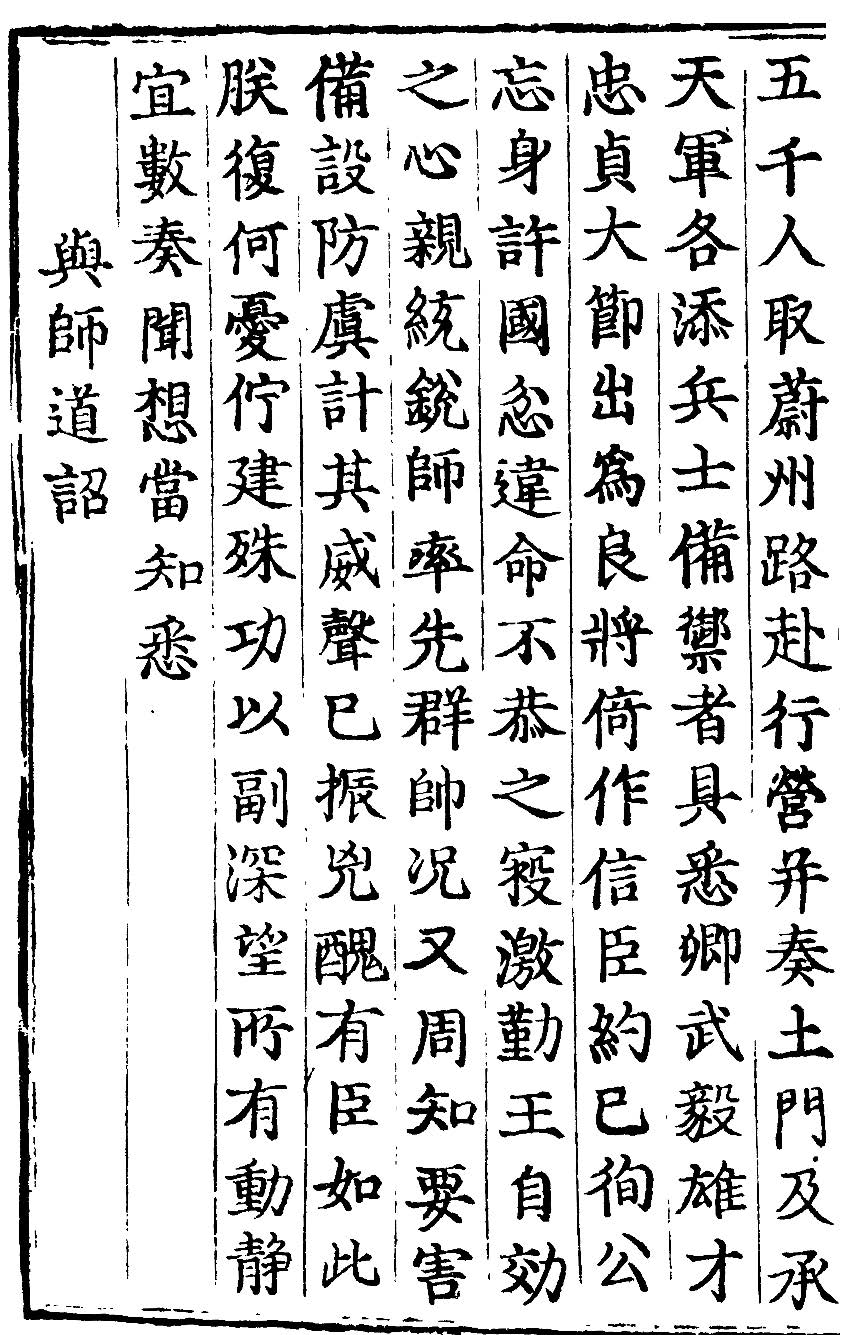 五千人取蔚州路赴行營并奏土門及承
天軍各添兵士備禦者具悉卿武毅雄才
忠貞大節出為良將倚作信臣約已徇公
忘身許國忿違命不恭之寇激勤王自効
之心親統銳師率先群帥况又周知要害
備設防虞計其威聲已振兇醜有臣如此
朕復何憂佇建殊功以副深望所有動静
宜數奏聞想當知悉
與師道詔